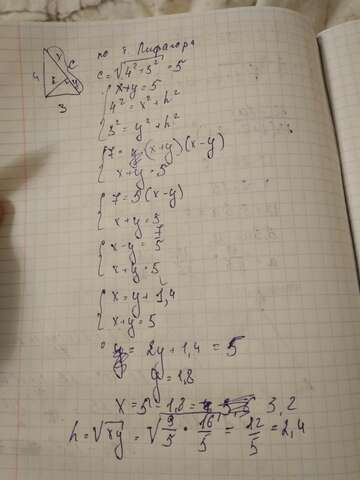 по т. Пифагора
4 x c h y
3
c = √4² + 3² = 5
x+y = 5
4² = x² + h²
3² = y² + h²
7 = (x+y)(x-y)
x+y = 5
7 = 5(x-y)
x+y = 5
x-y = 7/5
x+y = 5
x = y + 1,4
x+y = 5
2y + 1,4 = 5
y = 1,8
x = 5 - 1,8 = 3,2
h = √xy = √9/5 · 16/5 = 12/5 = 2,4